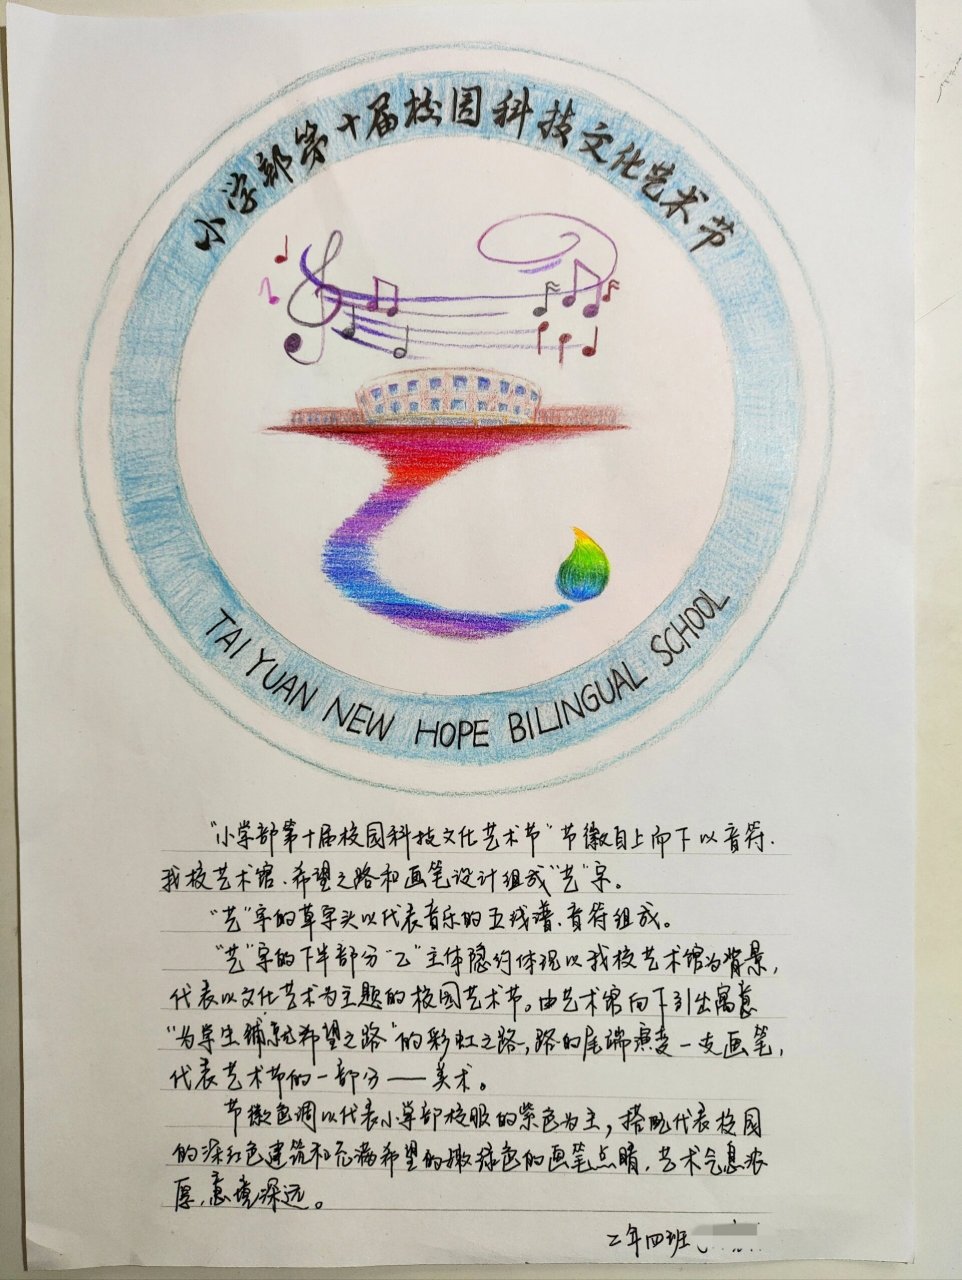 小学部第十届校园科技文化艺术节
TAI YUAN NEW HOPE BILINGUAL SCHOOL
“小学部第十届校园科技文化艺术节”节徽自上向下以音符、
我校艺术馆、希望之路和画笔设计组成“艺”字。
“艺”字的草字头以代表音乐的五线谱、音符组成。
“艺”字的下半部分“乙”主体隐约体现以我校艺术馆为背景，
代表以文化艺术为主题的校园艺术节。由艺术馆向下引出寓意
“为学生铺就希望之路”的彩虹之路，路的尾端演变一支画笔，
代表艺术节的一部分——美术。
节徽色调以代表小学部校服的紫色为主，搭配代表校园
的深红色建筑和充满希望的嫩绿色的画笔点睛，艺术气息浓
厚，意境深远。
二年四班